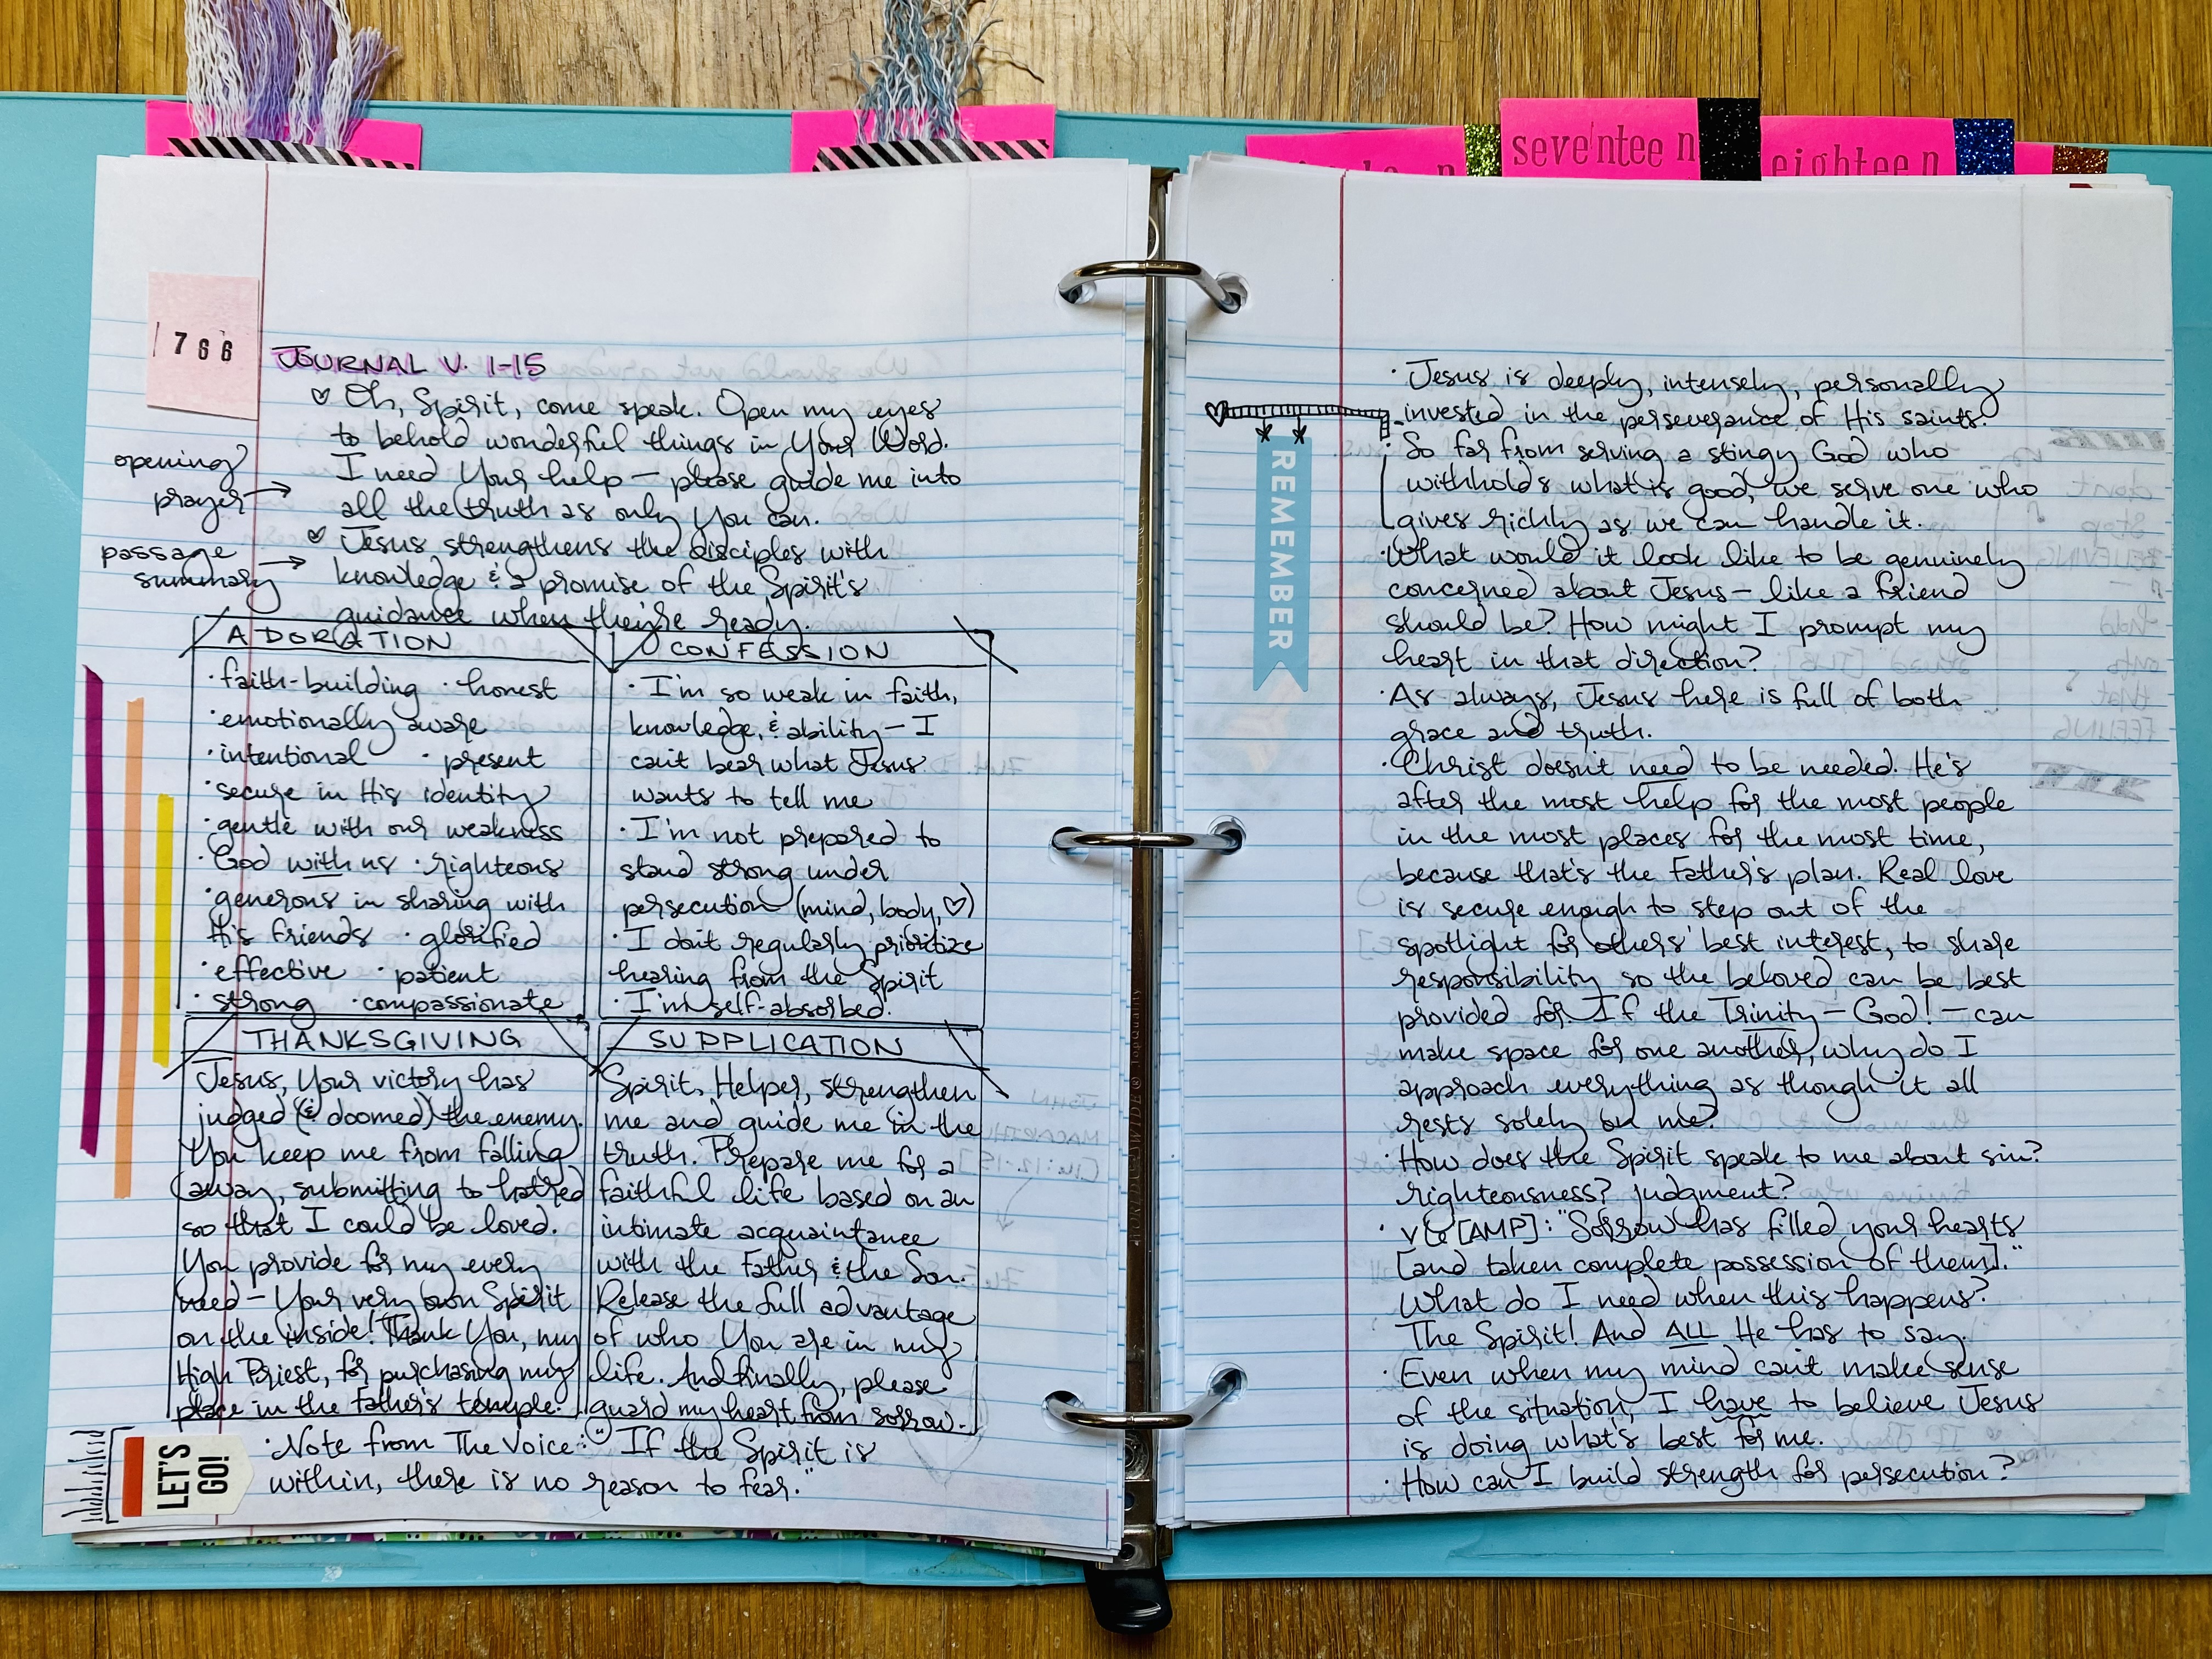 seventeen
eighteen
766
JOURNAL V. 1-15
opening
prayer
♡ Oh, Spirit, come speak. Open my eyes
to behold wonderful things in Your Word.
I need Your help – please guide me into
all the truth as only You can.
passage
summary
♡ Jesus strengthens the disciples with
knowledge & a promise of the Spirit's
guidance when they're ready.
ADORATION
· faith-building · honest
· emotionally aware
· intentional · present
· secure in His identity
· gentle with our weakness
· God with us · righteous
· generous in sharing with
His friends · glorified
· effective · patient
· strong · compassionate
CONFESSION
· I'm so weak in faith,
knowledge, & ability – I
can't bear what Jesus
wants to tell me
· I'm not prepared to
stand strong under
persecution (mind, body, ♡)
· I don't regularly prioritize
hearing from the Spirit
· I'm self-absorbed.
THANKSGIVING
Jesus, Your victory has
judged (& doomed) the enemy.
You keep me from falling
away, submitting to hatred
so that I could be loved.
You provide for my every
need – Your very own Spirit
on the inside! Thank You, my
High Priest, for purchasing my
place in the Father's temple.
SUPPLICATION
Spirit, Helper, strengthen
me and guide me in the
truth. Prepare me for a
faithful life based on an
intimate acquaintance
with the Father & the Son.
Release the full advantage
of who You are in my
life. And finally, please
guard my heart from sorrow.
LET'S
GO!
· Note from The Voice: "If the Spirit is
within, there is no reason to fear."
REMEMBER
· Jesus is deeply, intensely, personally
invested in the perseverance of His saints.
· So far from serving a stingy God who
withholds what is good, we serve one who
gives richly as we can handle it.
· What would it look like to be genuinely
concerned about Jesus – like a friend
should be? How might I prompt my
heart in that direction?
· As always, Jesus here is full of both
grace and truth.
· Christ doesn't need to be needed. He's
after the most help for the most people
in the most places for the most time,
because that's the Father's plan. Real love
is secure enough to step out of the
spotlight for others' best interest, to share
responsibility so the beloved can be best
provided for. If the Trinity – God! – can
make space for one another, why do I
approach everything as though it all
rests solely on me?
· How does the Spirit speak to me about sin?
righteousness? judgment?
· v 6 [AMP]: "Sorrow has filled your hearts
[and taken complete possession of them]."
What do I need when this happens?
The Spirit! And ALL He has to say.
· Even when my mind can't make sense
of the situation, I have to believe Jesus
is doing what's best for me.
· How can I build strength for persecution?